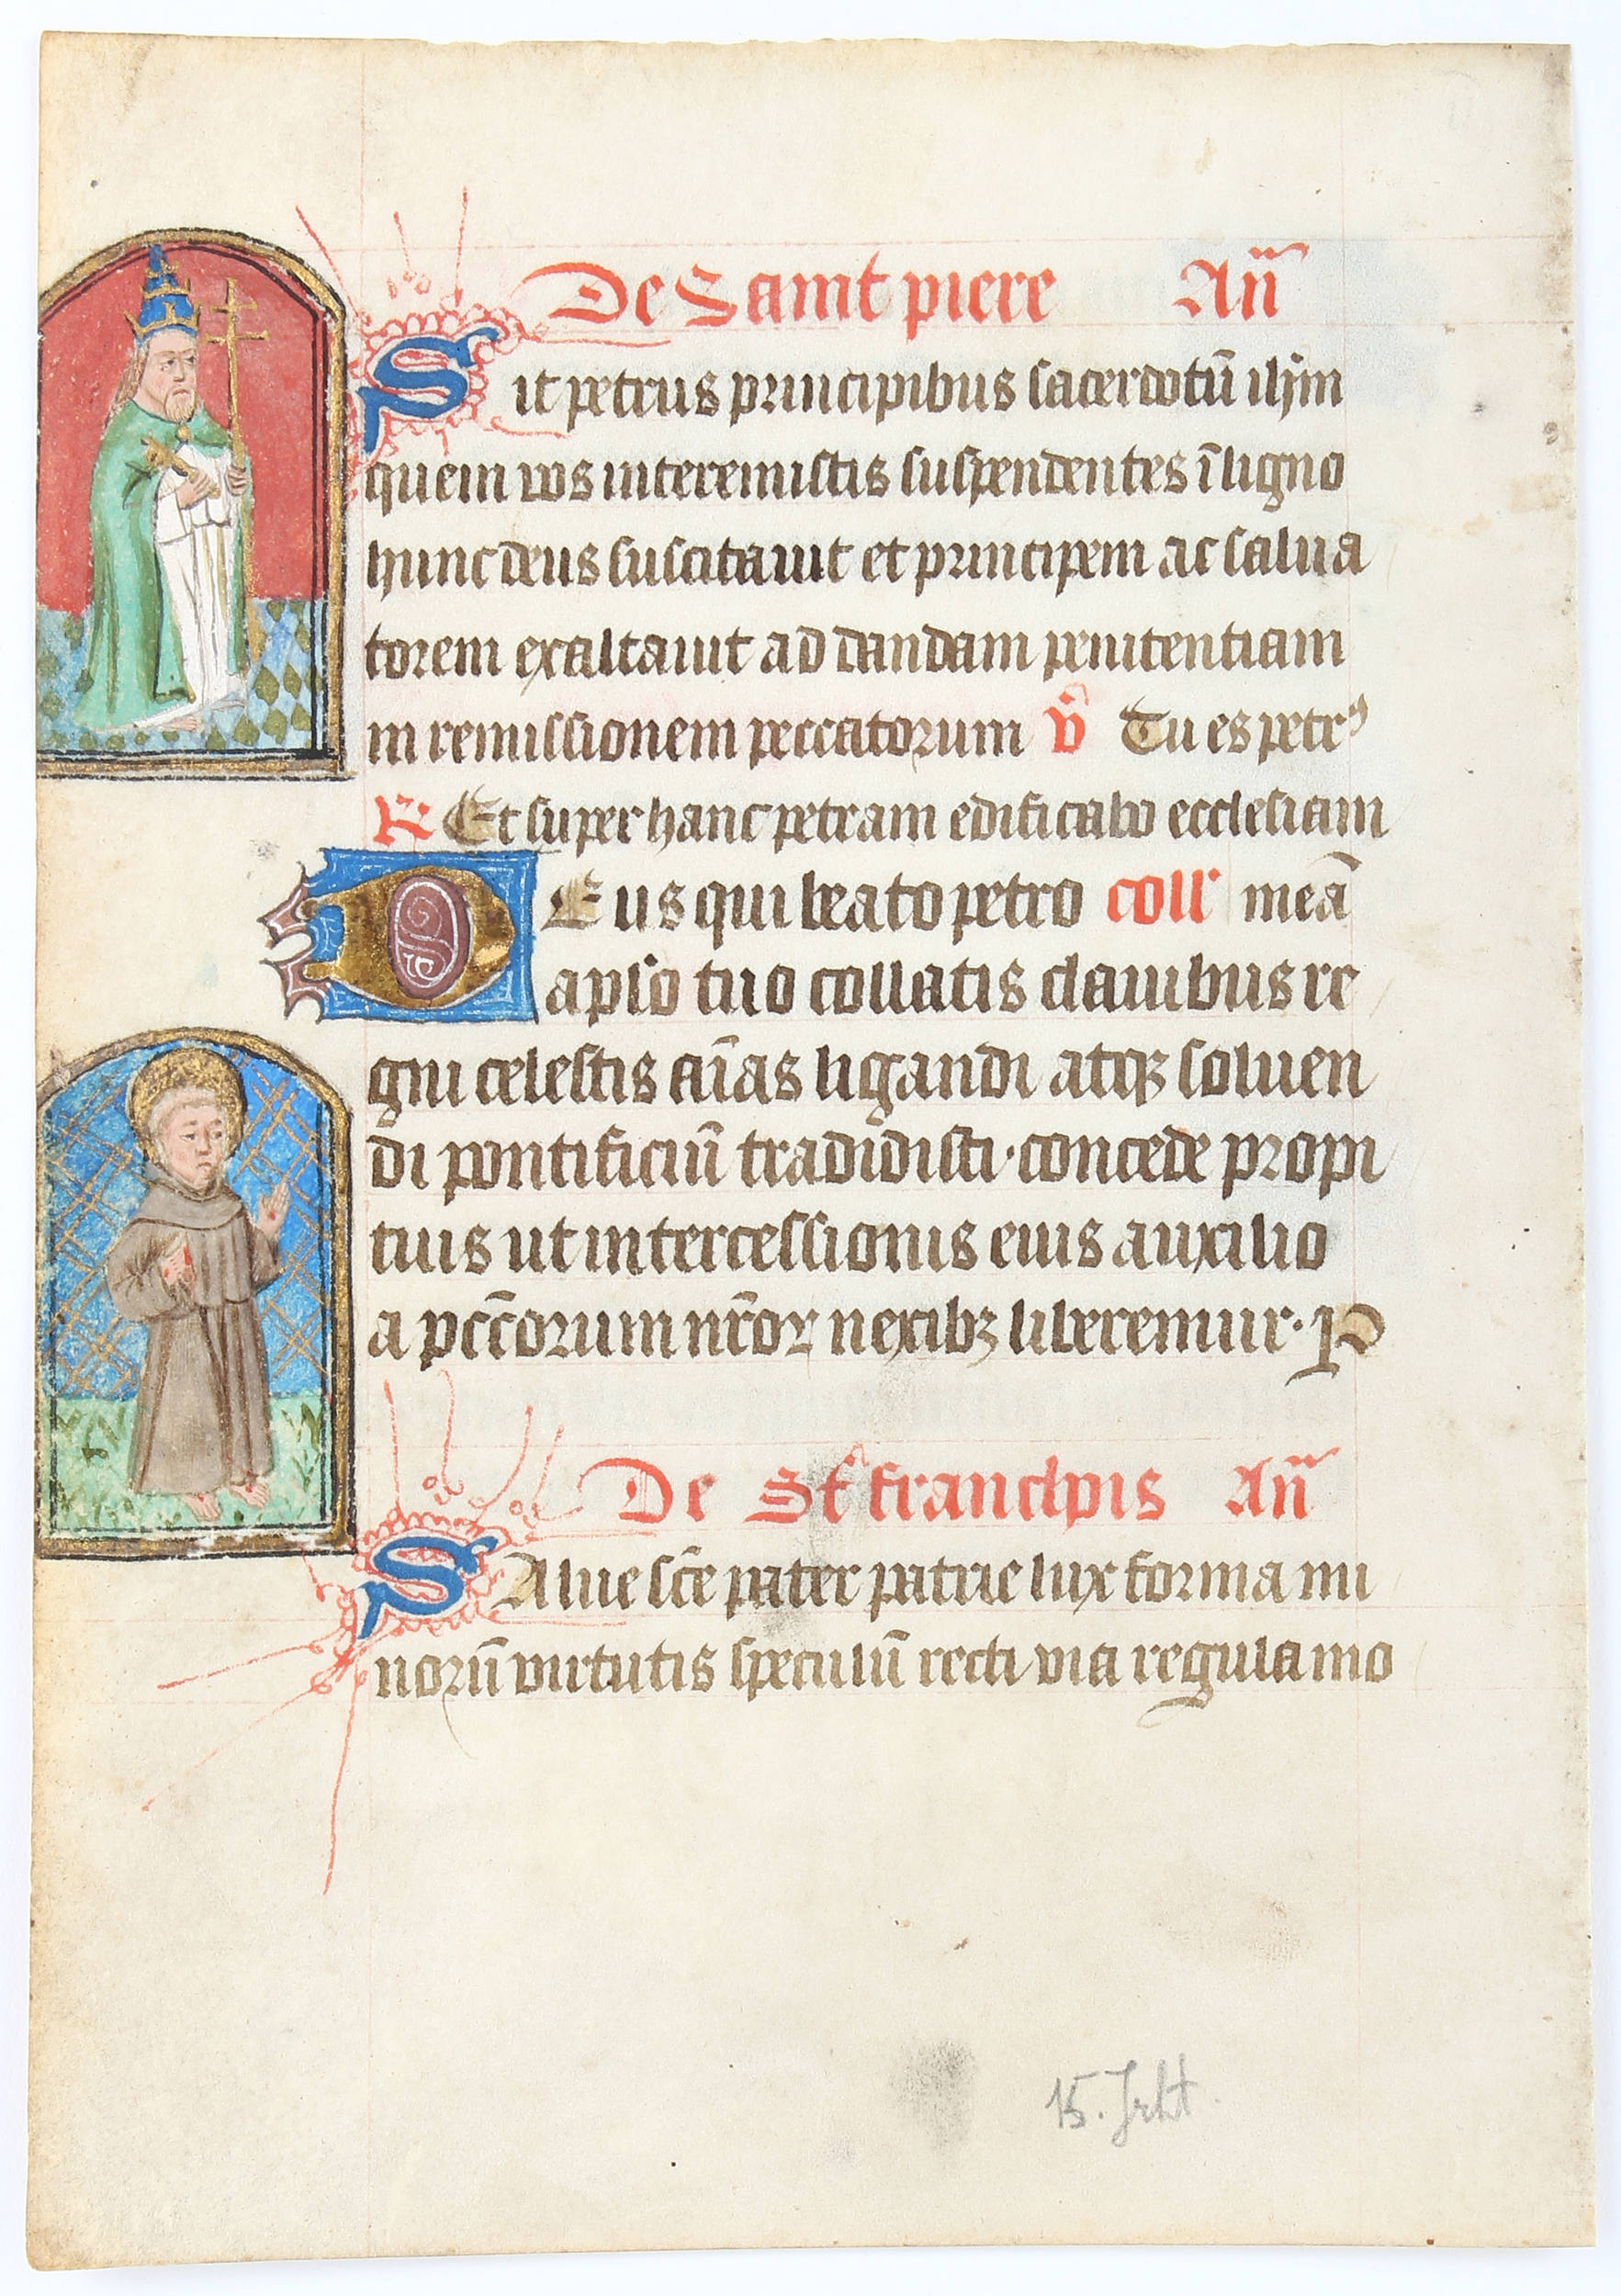 De Saint piere An̄
Sit petrus principibus sacerdotū ihm̄
quem vos interemistis suspendentes ī ligno
hunc deus suscitauit et principem ac salua
torem exaltauit ad dandam penitentiam
in remissionem peccatorum v̄ Tu es petrꝰ
R Et super hanc petram edificabo ecclesiam
DEus qui beato petro coll' meā
aplo tuo collatis clauibus re
gni celestis aīas ligandi atqꝫ soluen
di pontificiū tradidisti · concede propi
tius ut intercessionis eius auxilio
a pccōrum nr̄oꝝ nexibꝫ liberemur · P
De St̄ franchois An̄
SAlue scē pater patrie lux forma mi
norū virtutis speculū recti via regula mo
15. Jrht.